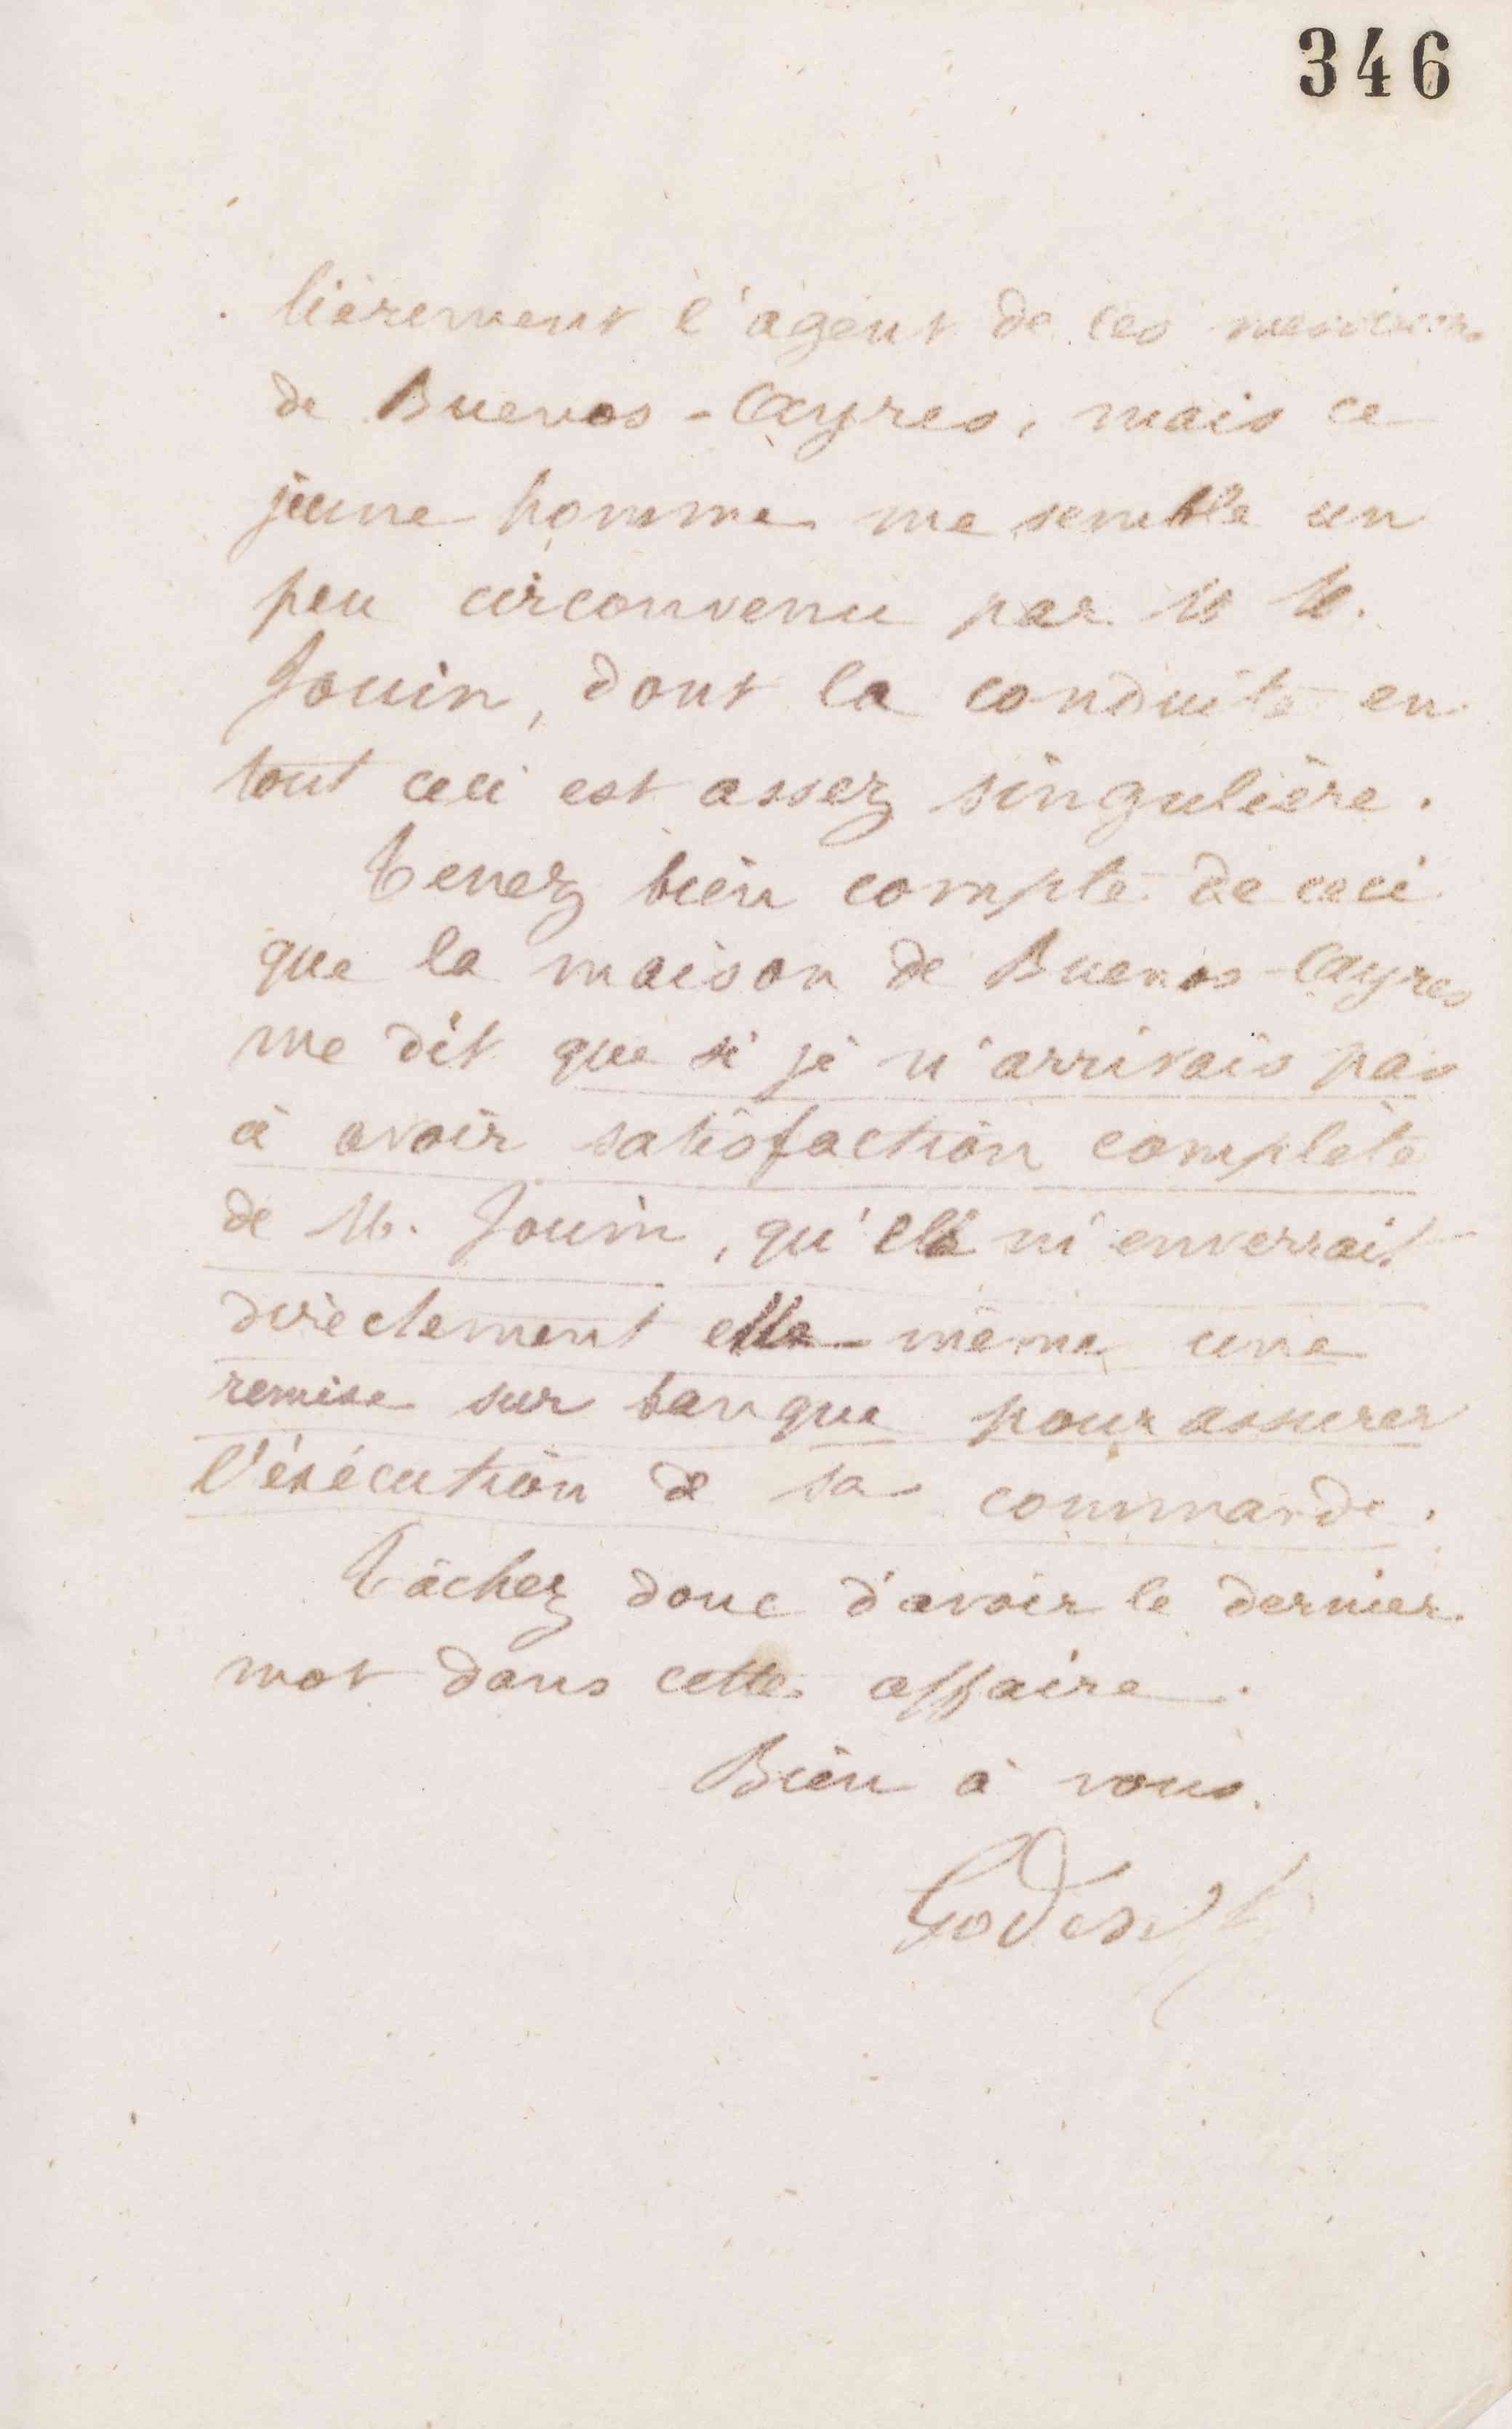 346
lièrement l'agent de ces messieurs
de Buenos-Ayres, mais ce
jeune homme me semble un
peu circonvenu par M M.
Jouin, dont la conduite en
tout ceci est assez singulière.
Tenez bien compte de ceci
que la maison de Buenos-Ayres
me dit que si je n'arrivais pas
à avoir satisfaction complète
de M. Jouin, qu'elle m'enverrait
directement elle-même une
remise sur banque pour assurer
l'exécution de sa commande.
Tâchez donc d'avoir le dernier
mot dans cette affaire.
Bien à vous.
Godin